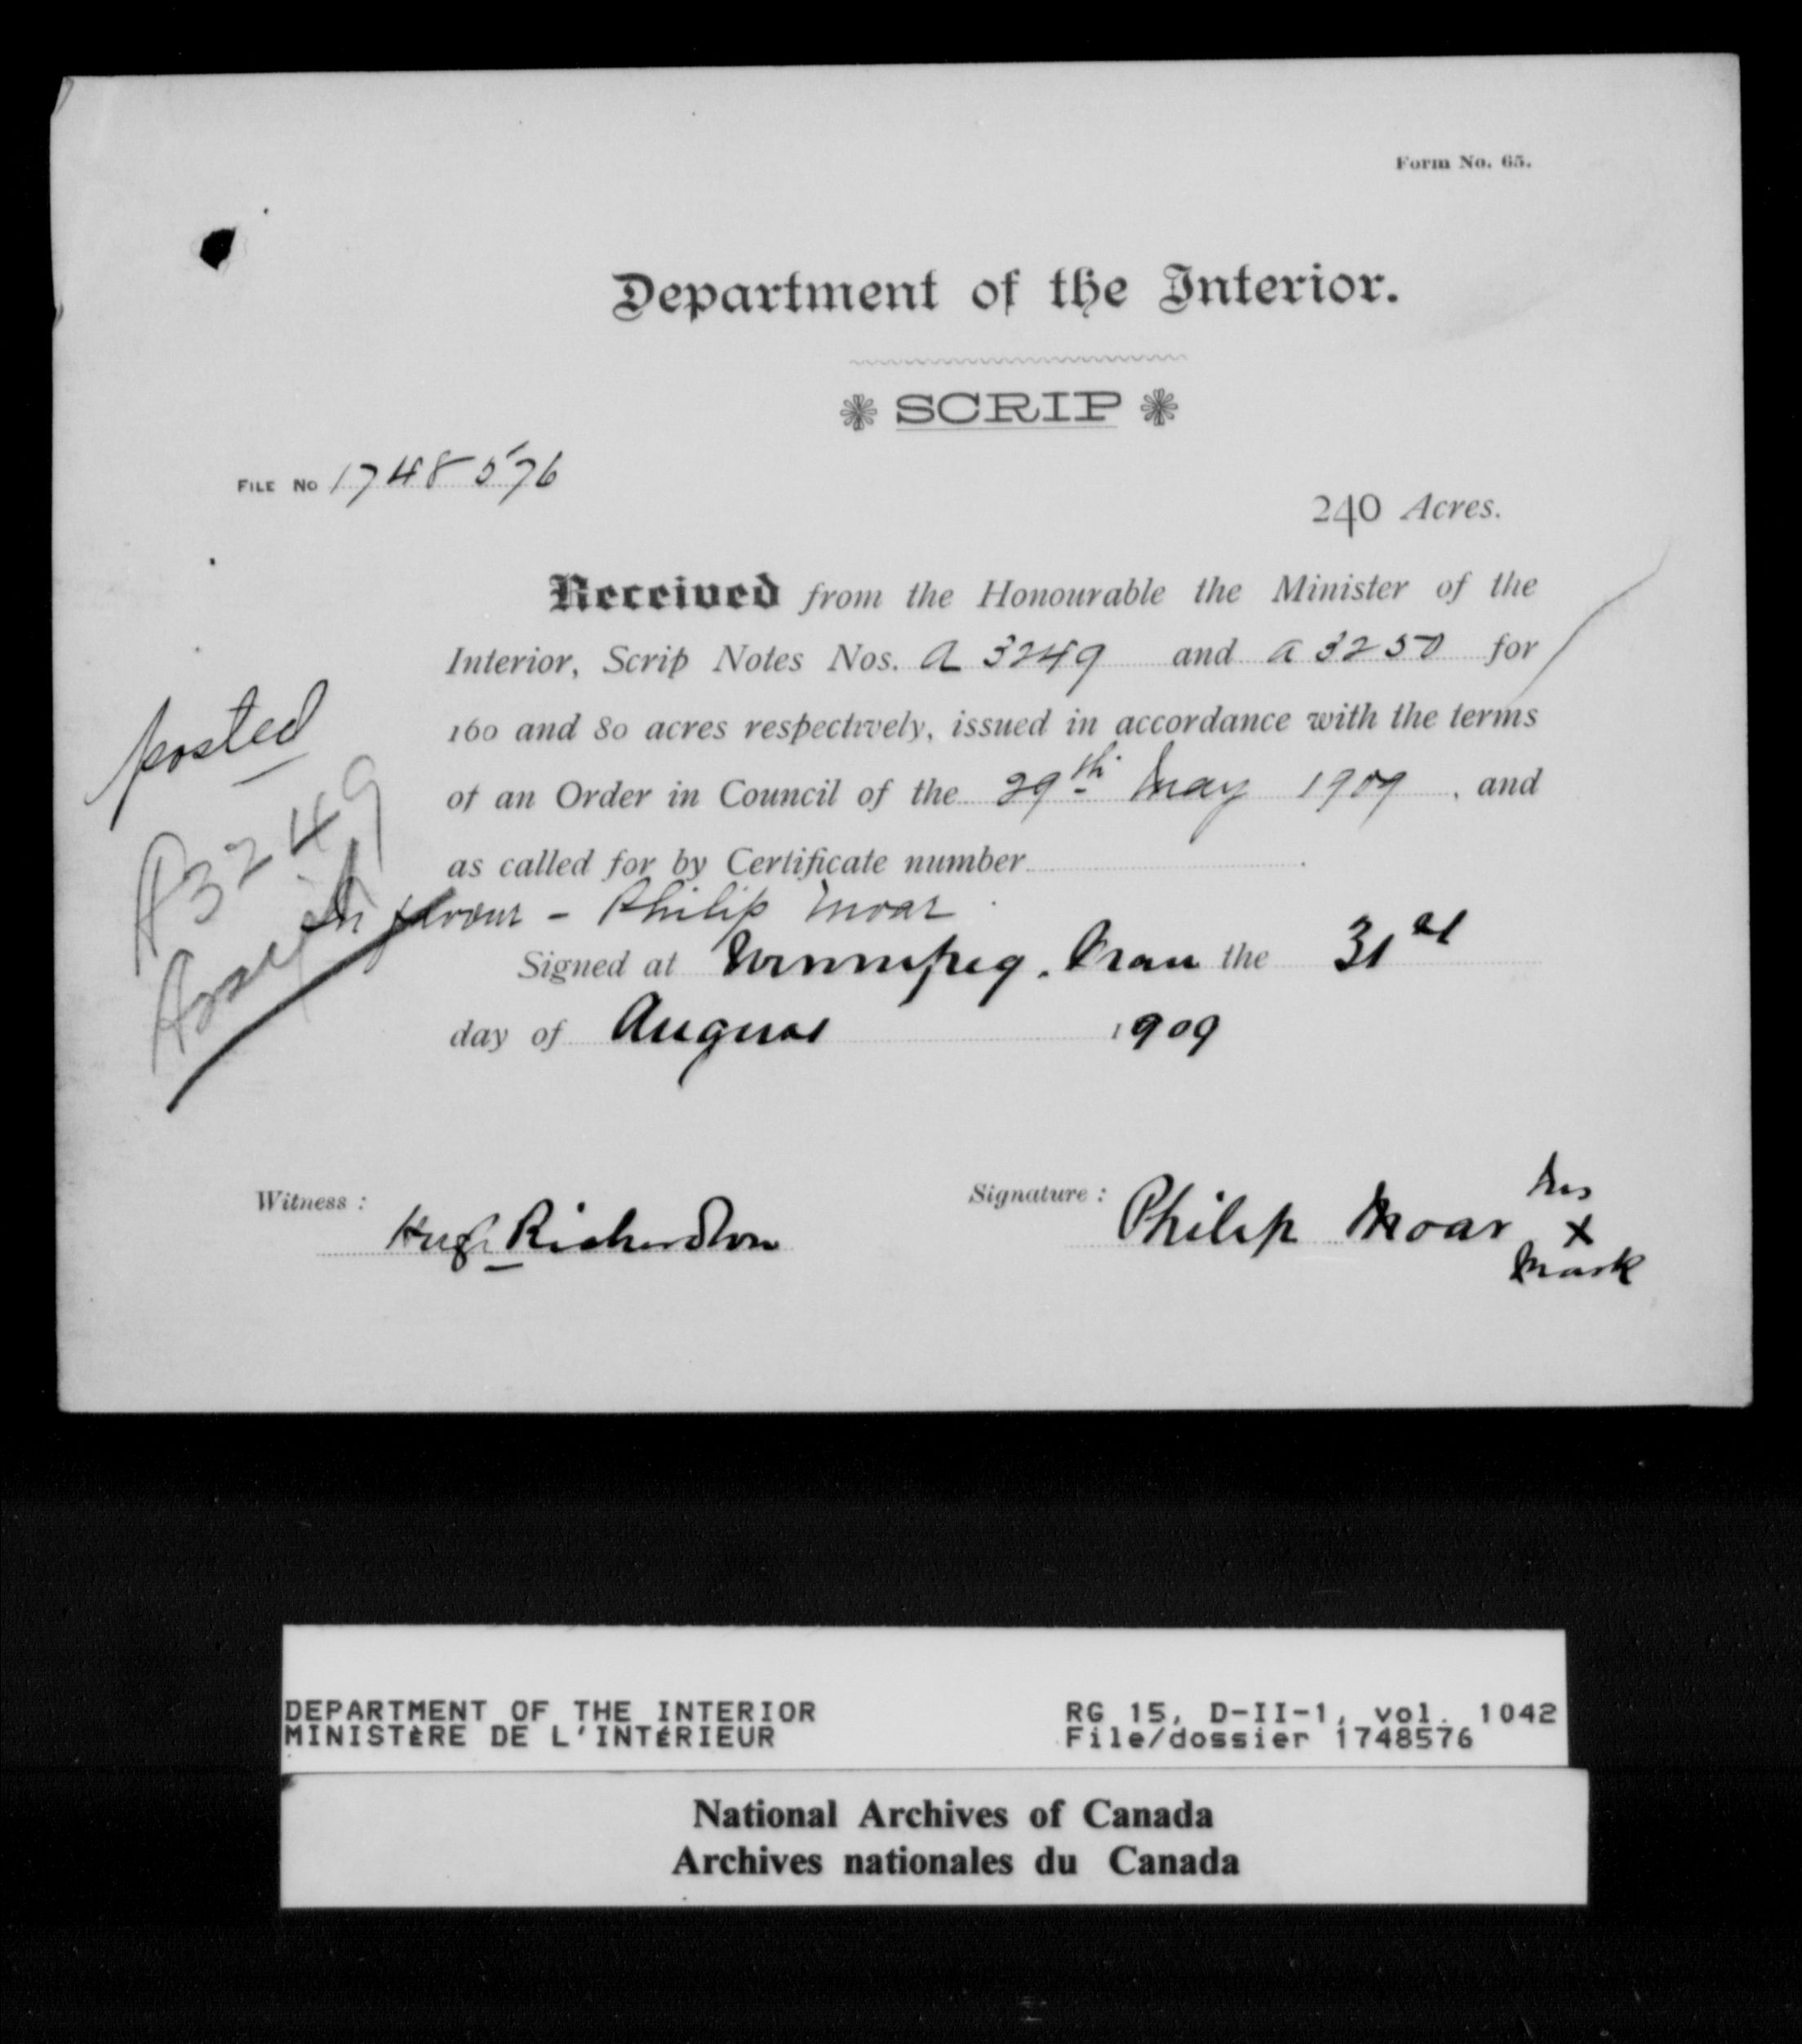 Form No. 65.
Department of the Interior.
SCRIP
FILE No 1748576
240 Acres.
Received from the Honourable the Minister of the
Interior, Scrip Notes Nos. A 3249 and A 3250 for
160 and 80 acres respectively, issued in accordance with the terms
of an Order in Council of the 29th May 1909, and
as called for by Certificate number
in favour - Philip Moar
Signed at Winnipeg, Man the 31st
day of August 1909
posted
A3249
Witness: Hugh Richardson
Signature: Philip Moar his
X
mark
DEPARTMENT OF THE INTERIOR RG 15, D-II-1, vol. 1042
MINISTÈRE DE L'INTÉRIEUR File/dossier 1748576
National Archives of Canada
Archives nationales du Canada